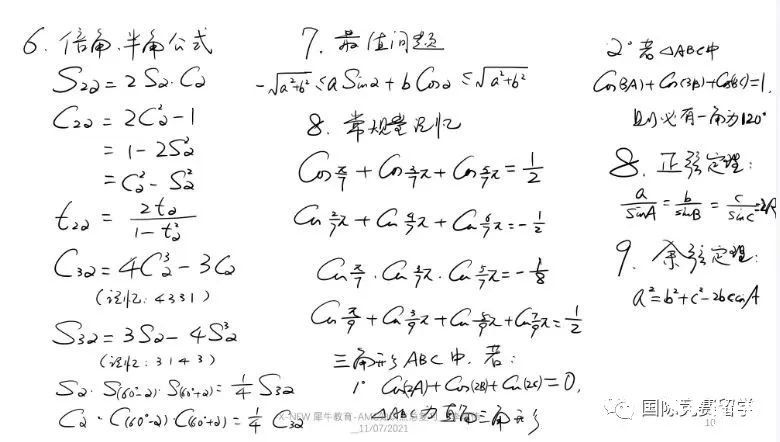 6. 倍角.半角公式
S2α = 2Sα·Cα
C2α = 2Cα² - 1
= 1 - 2Sα²
= Cα² - Sα²
t2α = 2tα / 1 - tα²
C3α = 4Cα³ - 3Cα
(记忆: 4331)
S3α = 3Sα - 4Sα³
(记忆: 3143)
Sα·S(60°-α)·S(60°+α) = 1/4 S3α
Cα·C(60°-α)·C(60°+α) = 1/4 C3α
7. 最值问题
-√a²+b² ≤ aSinα + bCosα ≤ √a²+b²
8. 常规量记忆
Cos π/7 + Cos 3/7π + Cos 5/7π = 1/2
Cos 2/7π + Cos 4/7π + Cos 6/7π = -1/2
Cos π/7 · Cos 3/7π · Cos 5/7π = -1/8
Cos π/9 + Cos 3/9π + Cos 5/9π + Cos 7/9π = 1/2
三角形ABC中,若:
1° Cos(2A) + Cos(2B) + Cos(2C) = 0,
△ABC为直角三角形
2° 若△ABC中
Cos(3A) + Cos(3B) + Cos(3C) = 1,
则必有一角为120°
8. 正弦定理:
a/sinA = b/sinB = c/sinC = 2R
9. 余弦定理:
a² = b² + c² - 2bccosA
X-NEW 犀牛教育-AM
_11/07/2021
10
国际竞赛留学